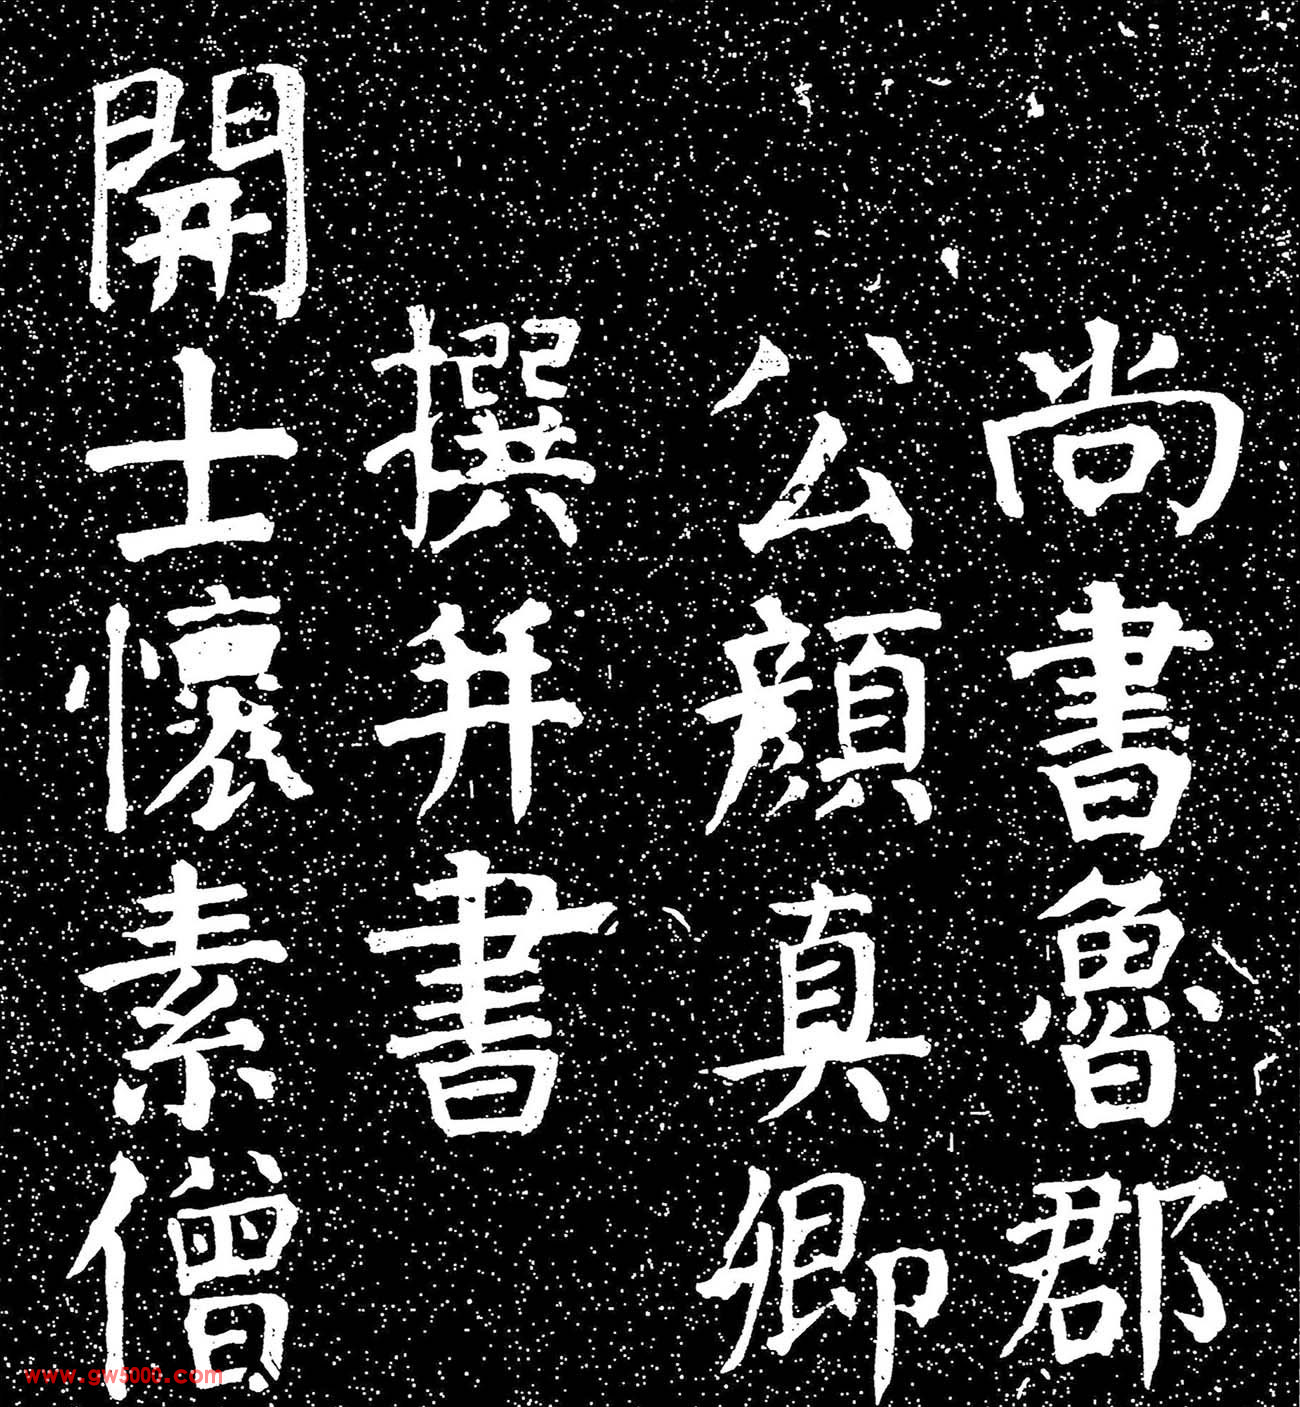 尚書魯郡
公顏真卿
撰并書
開士懷素僧
www.gw5000.com